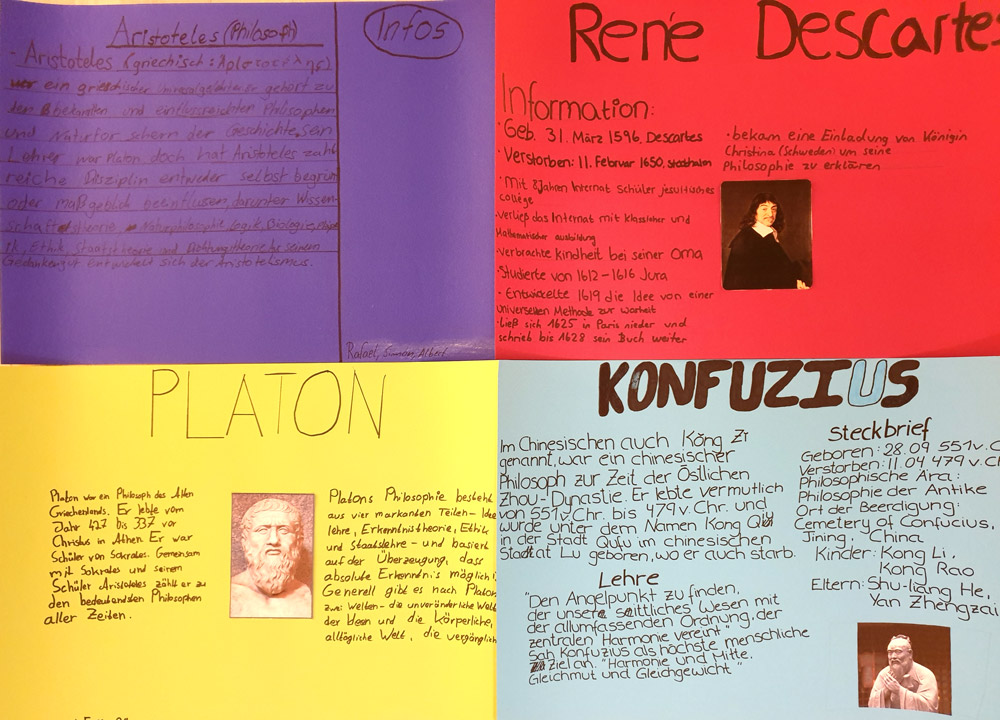 Aristoteles (Philosoph)
- Aristoteles (griechisch:
war ein griechischer Universalgelehrter er gehört zu
den bekannten und einflussreichten Philosophen
und Naturfor schern der Geschichte, sein
Lehrer war Platon, doch hat Aristoteles zahl
reiche Disziplin entweder selbst begrün
oder maßgeblich beeinflusen, darunter Wissen-
schaftstheorie, Naturphilosophie Logik, Biologie,
ik, Ethik Staatstheorie und Dichtungstheorie. Aus seinen
Gedankengut entwickelt sich der Aristotelismus.
Infos
Rafael, Simon, Albert
René Descartes
Information:
· Geb. 31. März 1596, Descartes
· Verstorben: 11. Februar 1650,
· Mit 8 Jahren Internat Schüler jesuitisches
collège
· verließ das Internat mit klassischer und
Mathematischer ausbildung
· verbrachte kindheit bei seiner Oma
· Studierte von 1612-1616 Jura
· Entwickelte 1619 die Idee von einer
universellen Methode zur warheit
· ließ sich 1625 in Paris nieder und
schrieb bis 1628 sein Buch weiter
· bekam eine Einladung von Königin
Christina (Schweden) um seine
Philosophie zu erklären
PLATON
Platon war ein Philosoph des Alten
Griechenlands. Er lebte vom
Jahr 427 bis 337 vor
Christus in Athen. Er war
Schüler von Sokrates. Gemeinsam
mit Sokrates und seinem
Schüler Aristoteles zählt er zu
den bedeutendsten Philosophen
aller Zeiten.
Platons Philosophie besteht
aus vier markanten Teilen - Idee
lehre, Erkenntnistheorie, Ethik
und Staatslehre - und basiert
auf der Überzeugung, dass
absolute Erkenntnis möglich i
Generell gibt es nach Platon
zwei Welten - die unveränderliche Welt
der Ideen und die körperliche,
alltägliche Welt, die vergänglich
KONFUZIUS
Im Chinesischen auch Kǒng Zǐ
genannt, war ein chinesischer
Philosoph zur Zeit der Östlichen
Zhou-Dynastie. Er lebte vermutlich
von 551 v. Chr. bis 479 v. Chr. und
wurde unter dem Namen Kong Qiū
in der Stadt Qufu im chinesischen
Staat Lu geboren, wo er auch starb.
Lehre
"Den Angelpunkt zu finden,
der unsere sittliches Wesen mit
der allumfassenden Ordnung, der
zentralen Harmonie vereint"
Sah Konfuzius als höchste menschliche
Ziel an. "Harmonie und Mitte,
Gleichmut und Gleichgewicht"
Steckbrief
Geboren: 28.09 551 v. C
Verstorben: 11.04 479 v. Ch
Philosophische Ära:
Philosophie der Antike
Ort der Beerdigung:
Cemetery of Confucius,
Jining, China
Kinder: Kong Li,
Kong Rao
Eltern: Shu-liang He,
Yan Zhengzai